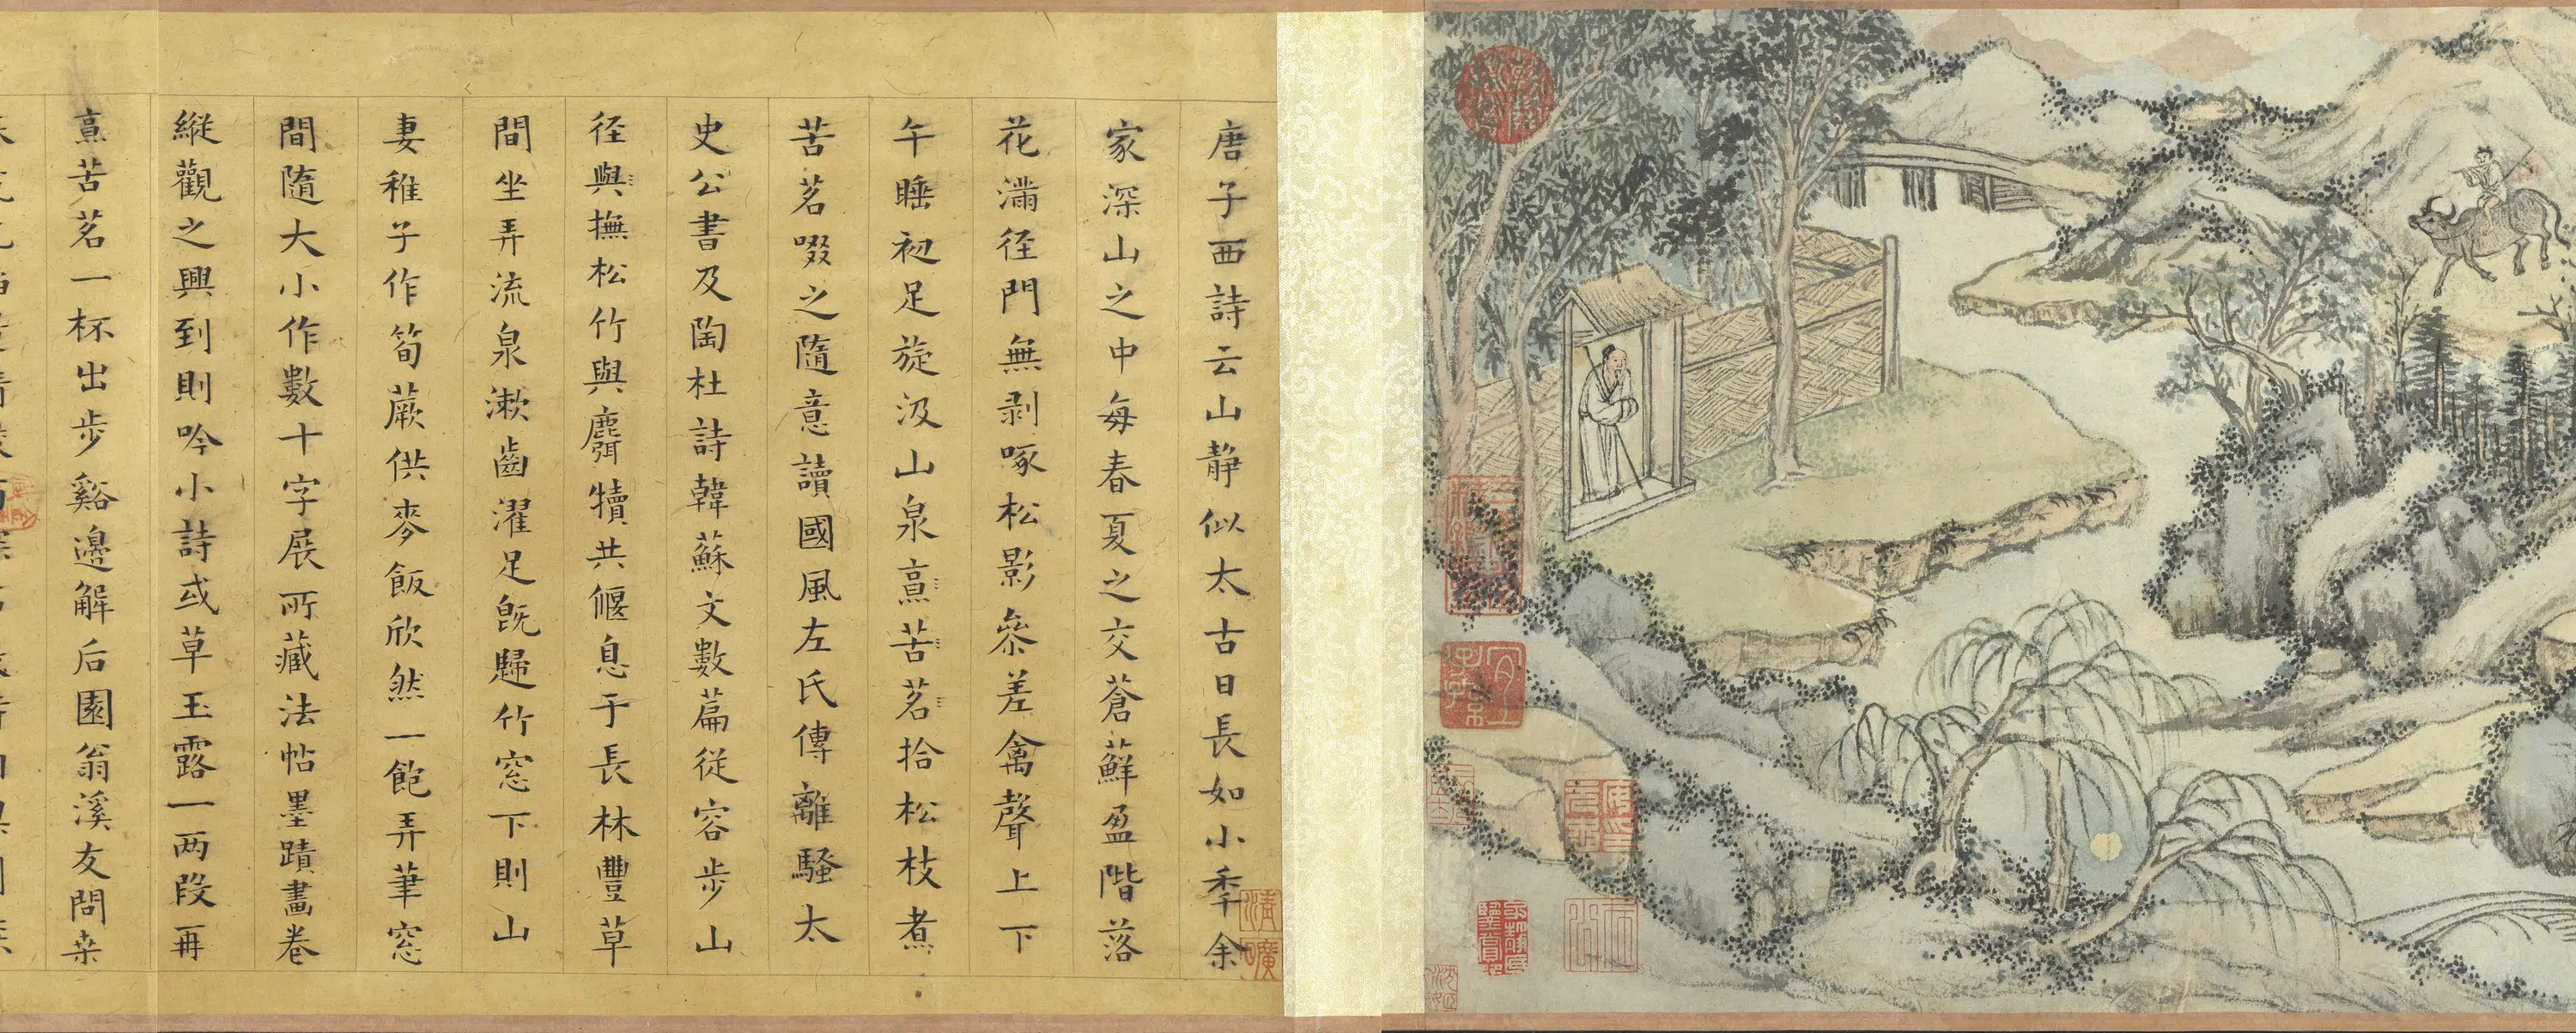 唐子西詩云山靜似太古日長如小秊余
家深山之中每春夏之交蒼蘚盈階落
花滿径門無剥啄松影叅差禽聲上下
午睡初足旋汲山泉烹苦茗拾松枝煮
苦茗啜之隨意讀國風左氏傳離騷太
史公書及陶杜詩韓蘇文數篇從容步山
径與撫松竹與麛犢共偃息于長林豐草
間坐弄流泉漱齒濯足既歸竹窓下則山
妻稚子作筍蕨供麥飯欣然一飽弄筆窓
間隨大小作數十字展所藏法帖墨蹟畫卷
縱觀之興到則吟小詩或草玉露一两段再
烹苦茗一杯出步谿邊解后園翁溪友問桒